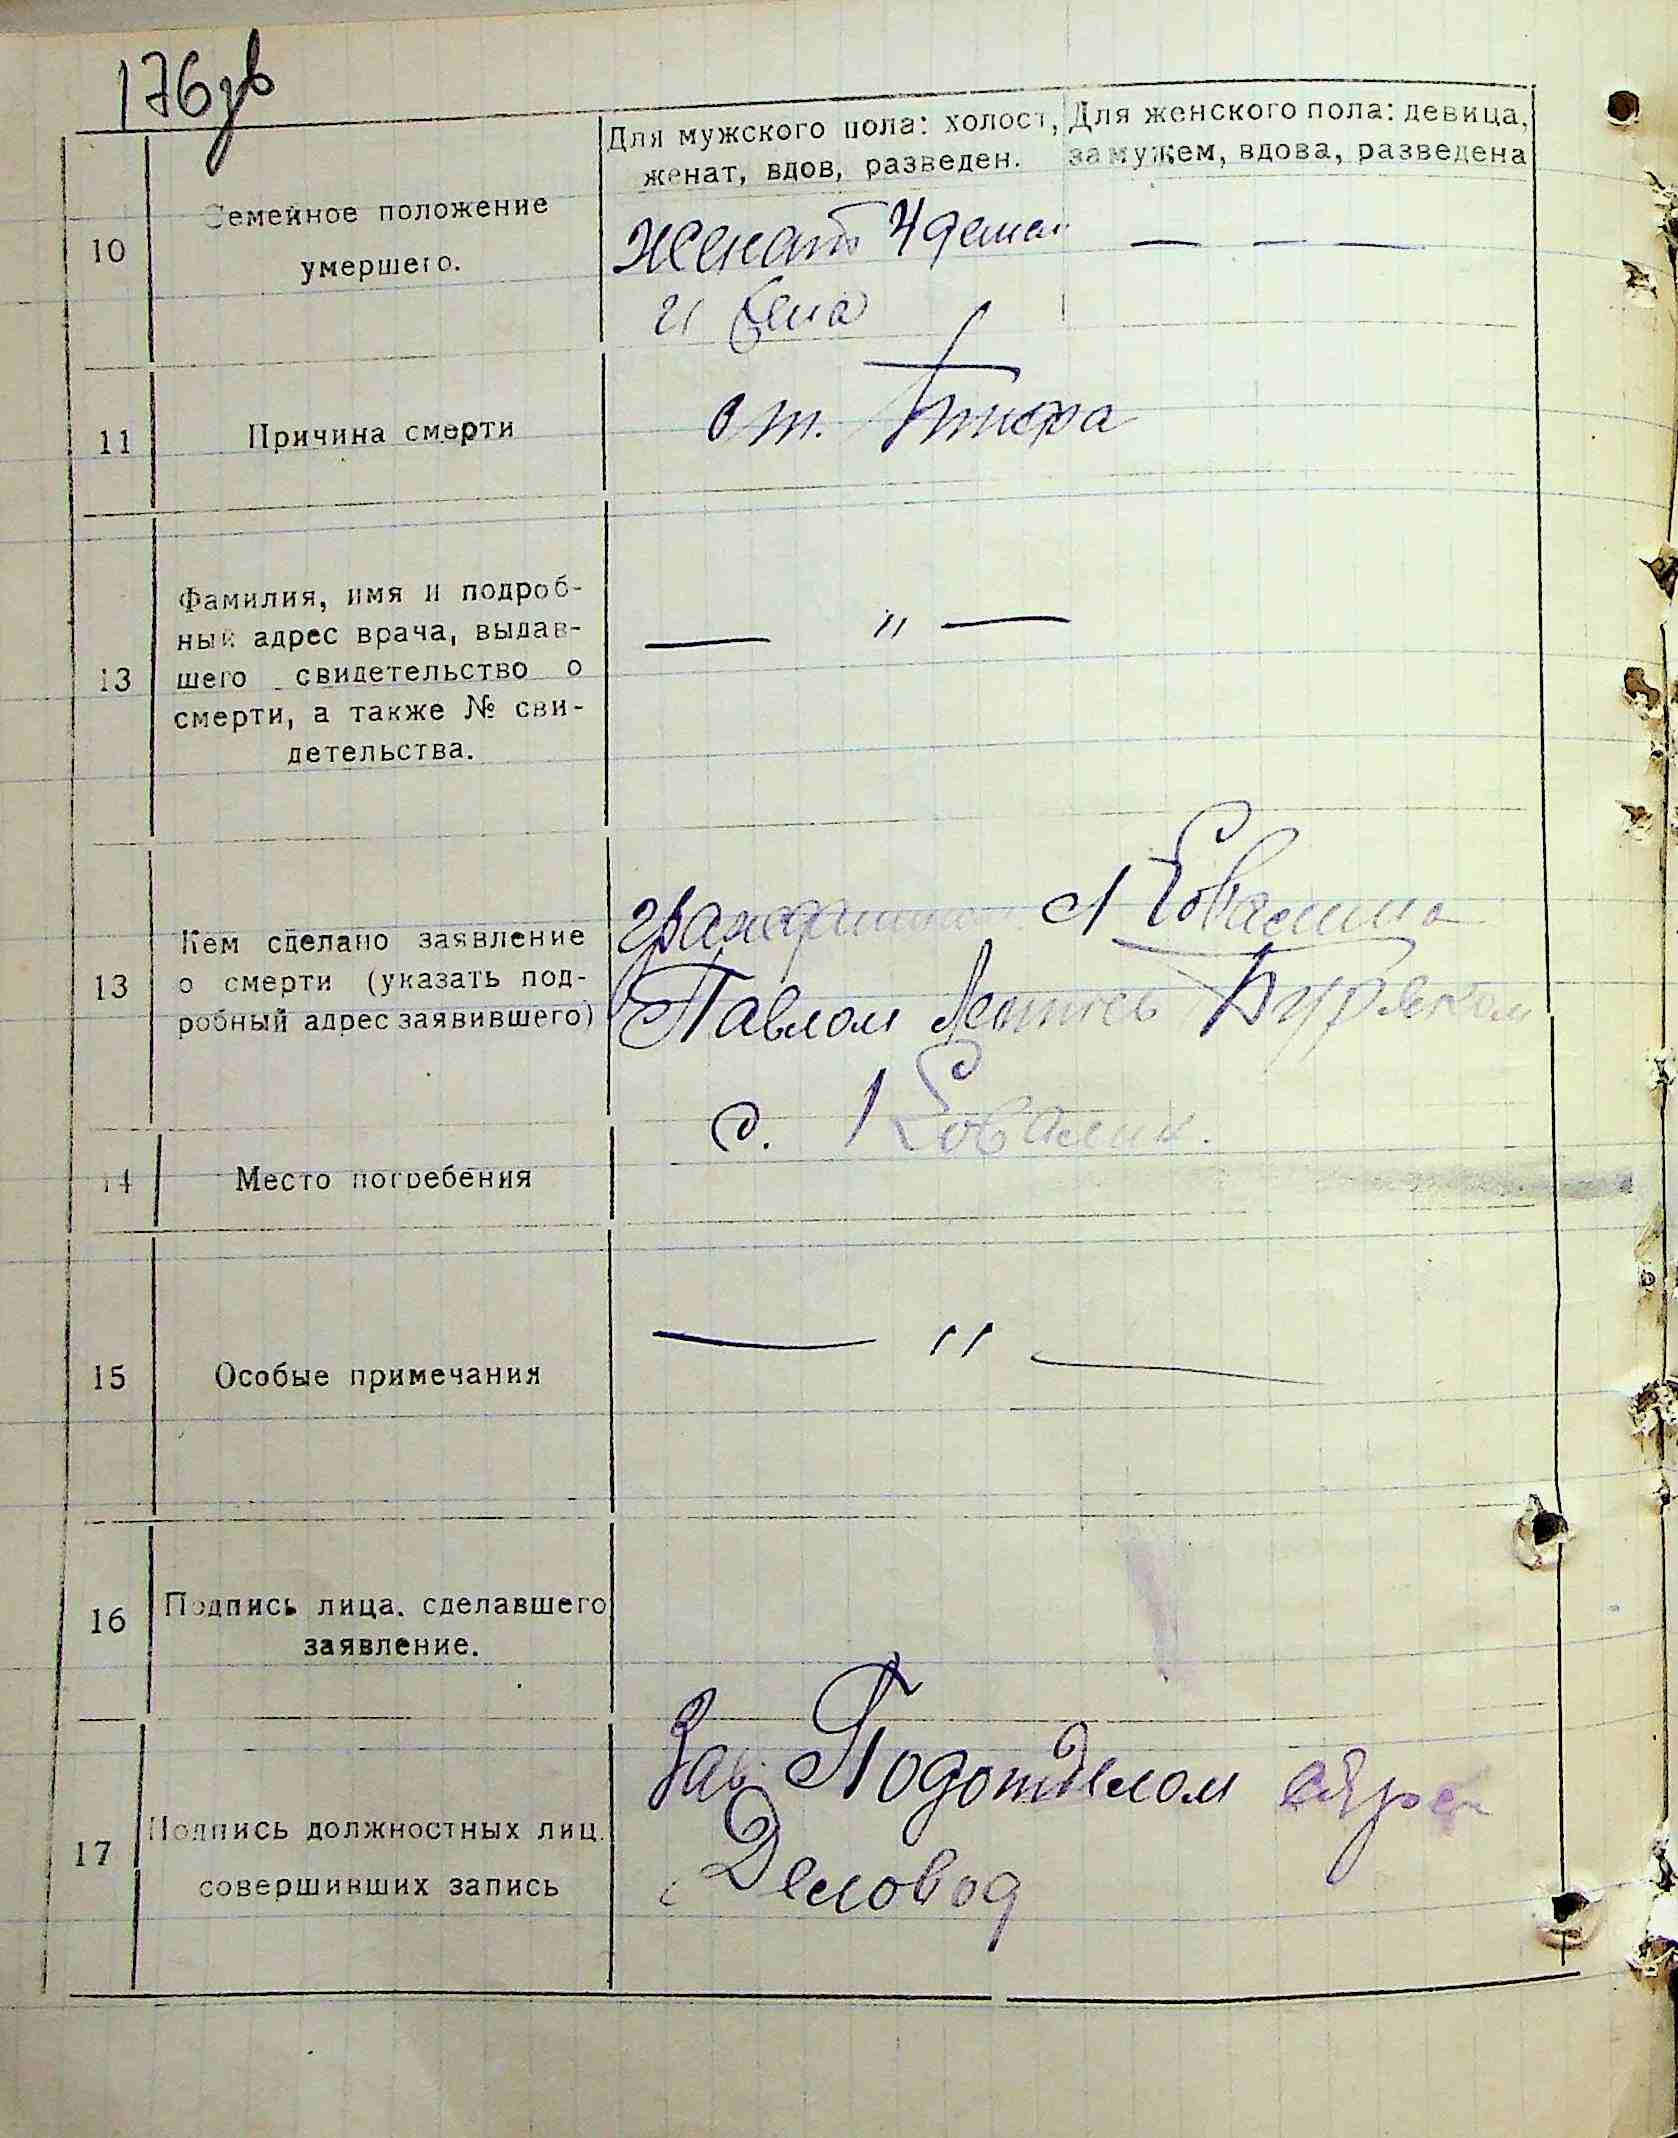 176зв
Для мужского пола: холост, женат, вдов, разведен.
Для женского пола: девица, замужем, вдова, разведена
10
Семейное положение
умершего.
Женатъ 4 детей
и жена
— — —
11
Причина смерти
от. тифа
13
Фамилия, имя и подроб-
ный адрес врача, выдав-
шего свидетельство о
смерти, а также № сви-
детельства.
— " —
13
Кем сделано заявление
о смерти (указать под-
робный адрес заявившего)
Павлом
с.
14
Место погребения
15
Особые примечания
— " —
16
Подпись лица, сделавшего
заявление.
17
Подпись должностных лиц,
совершивших запись
Зав. Подотделом
Деловод